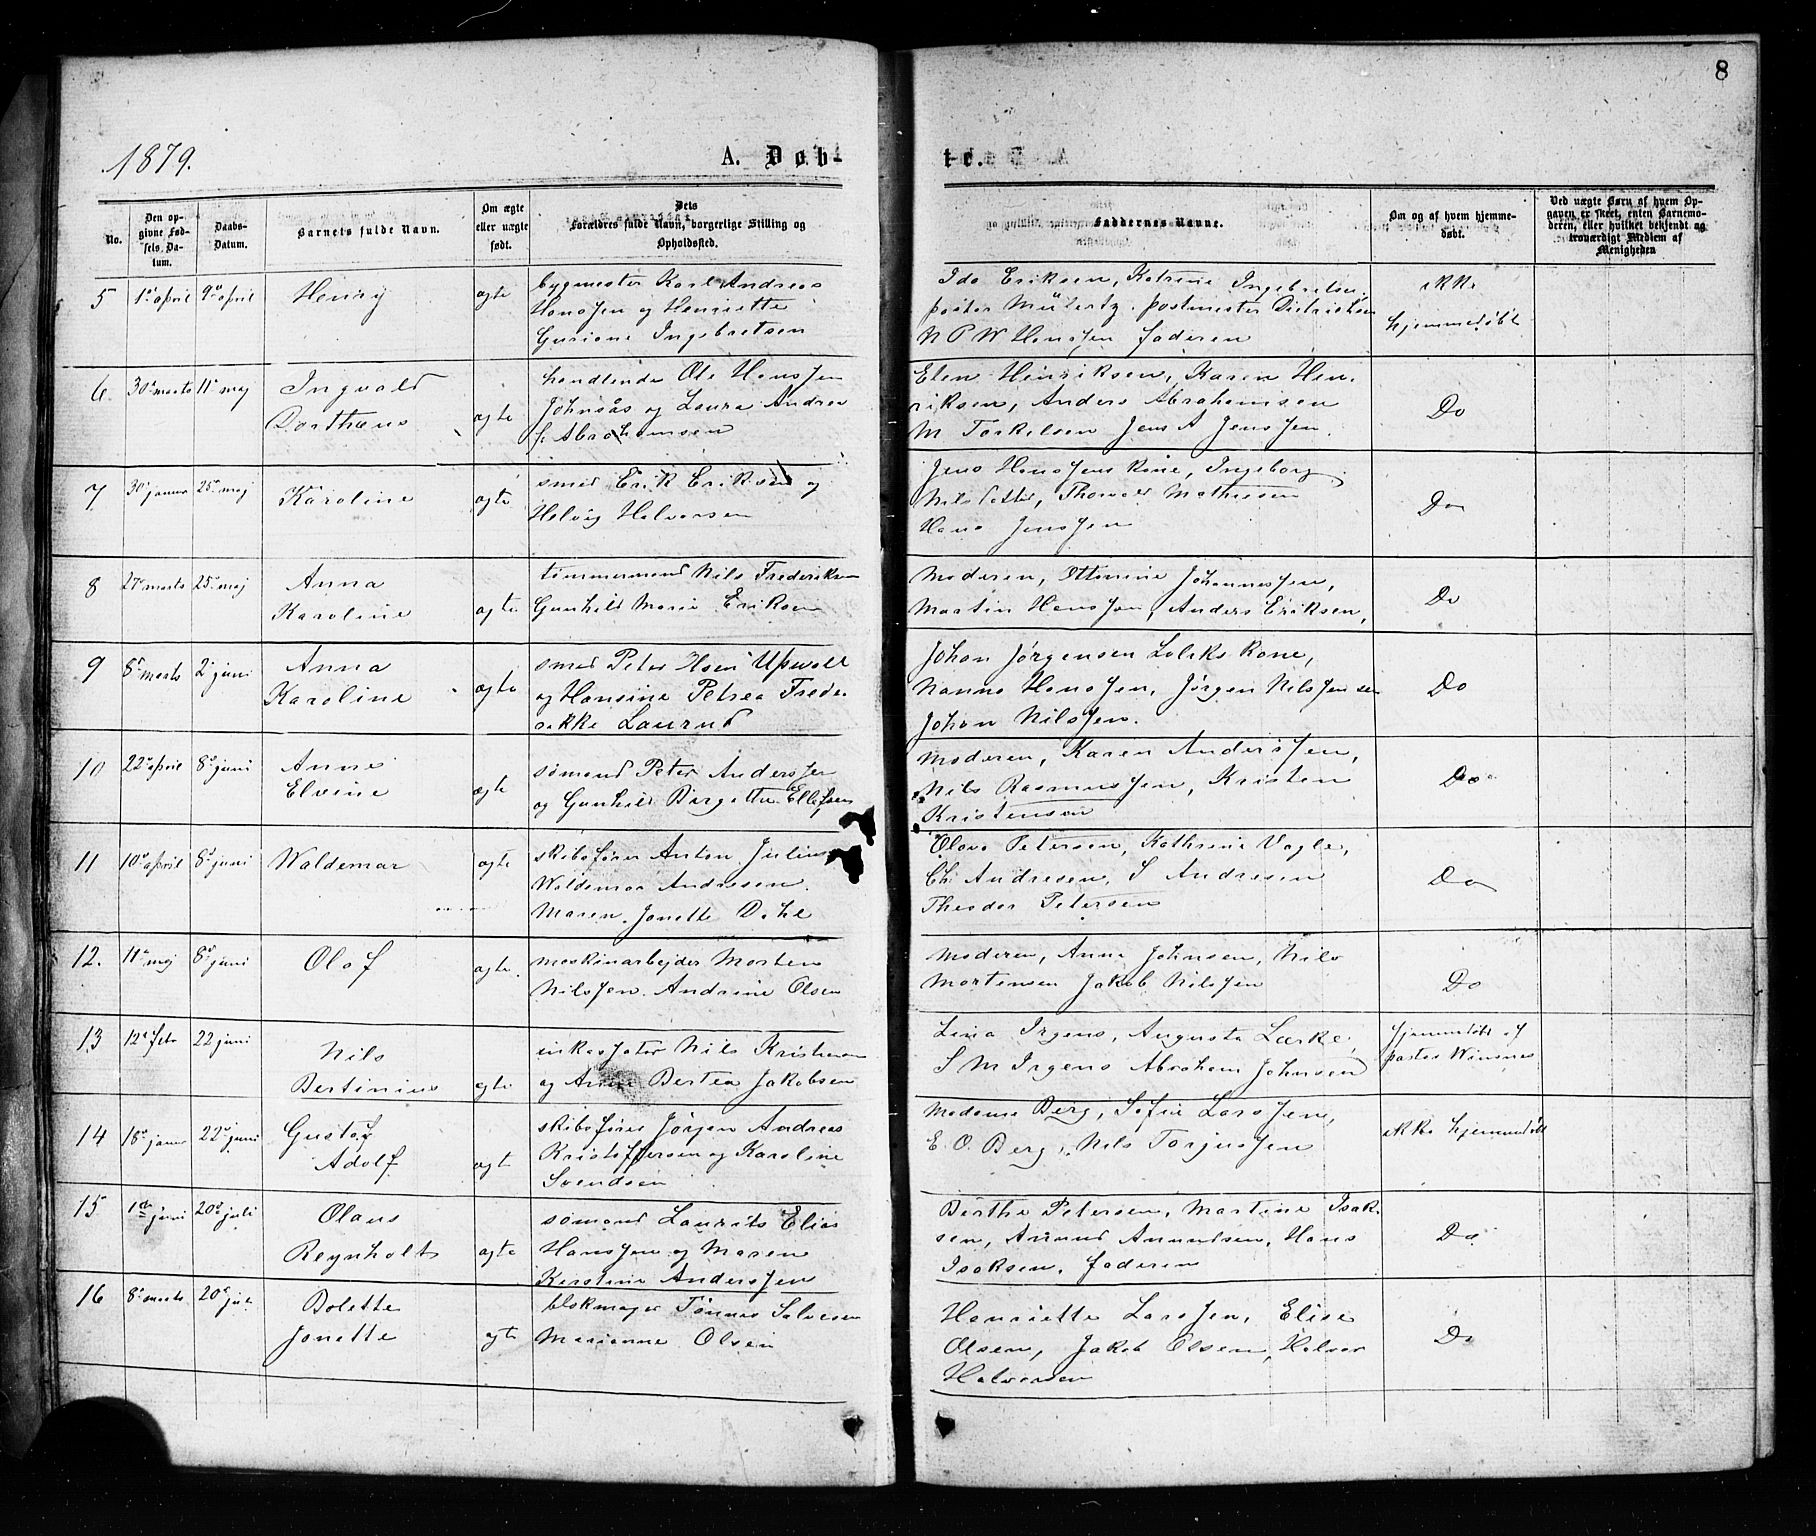 8
1879.
A. Døb-
te.
No.
Den opgivne Fødsels Datum.
Daabs-Datum.
Barnets fulde Navn.
Om ægte eller uægte født.
Dets Forældres fulde Navn, borgerlige Stilling og Opholdssted.
Faddernes Navne.
Om og af hvem hjemmedøbt.
Ved uægte Børn af hvem Opgaven er skeet, enten Barnemoderen, eller hvilket bekjendt og troværdigt Medlem af Menigheden
5 1ste april 9de april Henry ægte
bygmester Karl Andreas
Hansſen og Henriette
Guriane Ingebretsen
Ida Eriksen, Katrine Ingebretsen,
pastor Müllertz, postmester Dietrichsen
N P W Hansſen faderen
ikke
hjemmedøbt
6 30te marts 11te maj Ingvald
Dorthæus ægte
handlende Ole Hansſen
Johnsås og Laura Andrea
f. Abrahamsen
Elen Henriksen, Karen Hen-
riksen, Anders Abrahamsen
M Torkelsen Jens A Jensſen.
Do
7 30te januar 25de maj Karoline ægte
smed Erik Eriksen og
Helvig Halvorsen
Jens Hansſens kone, Ingeborg
Nilsdatter, Thorvald Mathisen
Hans Jensſen
Do
8 27de marts 25de maj Anna
Karoline ægte
tømmermand Nils Frederiksen
Gunhild Marie Eriksen
Moderen, Ottomine Johannesſen,
Martin Hansſen, Anders Eriksen,
Do
9 8de marts 2den juni Anna
Karoline ægte
smed Peter Olsen Upwall
og Hansine Petrea Frede-
rikke Laurud
Johan Jørgensen kone,
Nanna Hansſen, Jørgen Nilsſen
Johan Nilsſen.
Do
10 22de april 8de juni Anne
Elvine ægte
sømand Peter Andersſen
og Gunhild Birgette Ellefsen
Moderen, Karen Andersſen,
Nils Rasmusſen, Kristen
Kristensen
Do
11 10de april 8de juni Waldemar ægte
skibsfører Anton Julius
Waldemar Andresen
Maren Jonette Dahl
Olava Petersen, Kathrine Vagle,
Ch. Andresen, S Andresen
Theodor Petersen
Do
12. 11te maj 8de juni Olaf ægte.
maskinarbejder Morten
Nilsſen. Andrine Olsen
Moderen, Anne Johnsen, Nils
Mortensen Jakob Nilsſen
Do
13 12te febr 22 juni Nils
Bertinius ægte
inkassator Nils Kristensen
og Anne Bertea Jakobsen
Lina Irgens, Augusta Lærke,
S M Irgens Abraham Johnsen
hjemmedøbt af
pastor Winsnes
14 18de januar 22de juni Gustav
Adolf ægte
skibsfører Jørgen Andreas
Kristoffersen og Karoline
Svendsen
Madame Berg, Sofie Larsſen,
E. O. Berg, Nils Torjusſen
ikke hjemmedøbt
15 1ste juni 20de juli Olaus
Reynholt ægte
sømand Laurits Elias
Hansſen og Maren
Kirstine Andersſen
Birthe Petersen, Martine Isak-
sen, Amund Amundsen, Hans
Isaksen, faderen
Do
16 8de marts 20de juli Bolette
Jonette ægte
blokmager Tønnes Salvesen
Marianne Olsen
Henriette Larsſen, Elise
Olsen, Jakob Olsen, Halvor
Halvorsen
Do